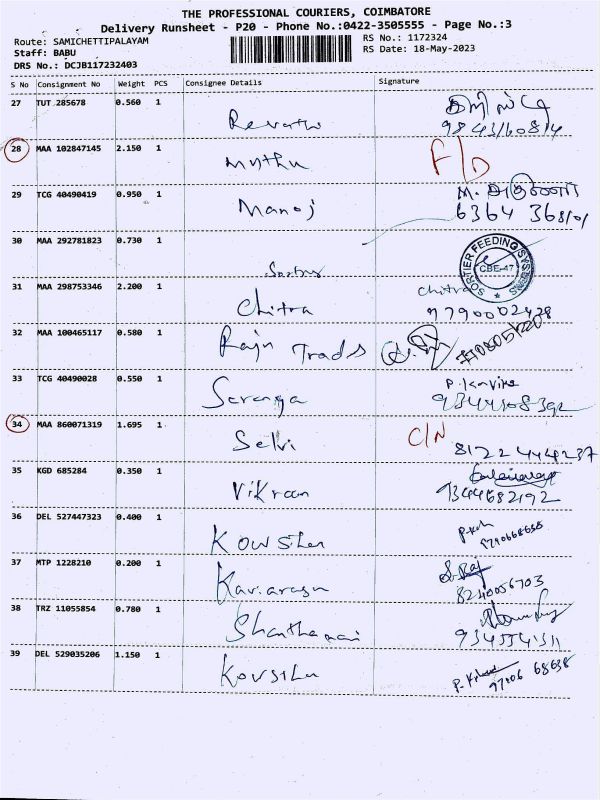 THE PROFESSIONAL COURIERS, COIMBATORE
Delivery Runsheet - P20 - Phone No.:0422-3505555 - Page No.:3
Route: SAMICHETTIPALAYAM
RS No.: 1172324
Staff: BABU
RS Date: 18-May-2023
DRS No.: DCJB117232403
S No Consignment No Weight PCS Consignee Details Signature
27 TUT 285678 0.560 1
Revathi
28 MAA 102847145 2.150 1
Muthu F/D
29 TCG 40490419 0.950 1
Manoj
30 MAA 292781823 0.730 1
SORTIER FEEDING SYSTEMS
CBE-47
31 MAA 298753346 2.200 1
Chitra
Chitra 9790002428
32 MAA 100465117 0.580 1
Raju Trades
33 TCG 40490028 0.550 1
Saranga
P. Kavika
34 MAA 860071319 1.695 1
Selvi C/N
8122444237
35 KGD 685284 0.350 1
Vikram
9344682192
36 DEL 527447323 0.400 1
37 MTP 1228210 0.200 1
Kaviarasu
S. Raj
8240056703
38 TRZ 11055854 0.780 1
39 DEL 529035206 1.150 1
97906 68638